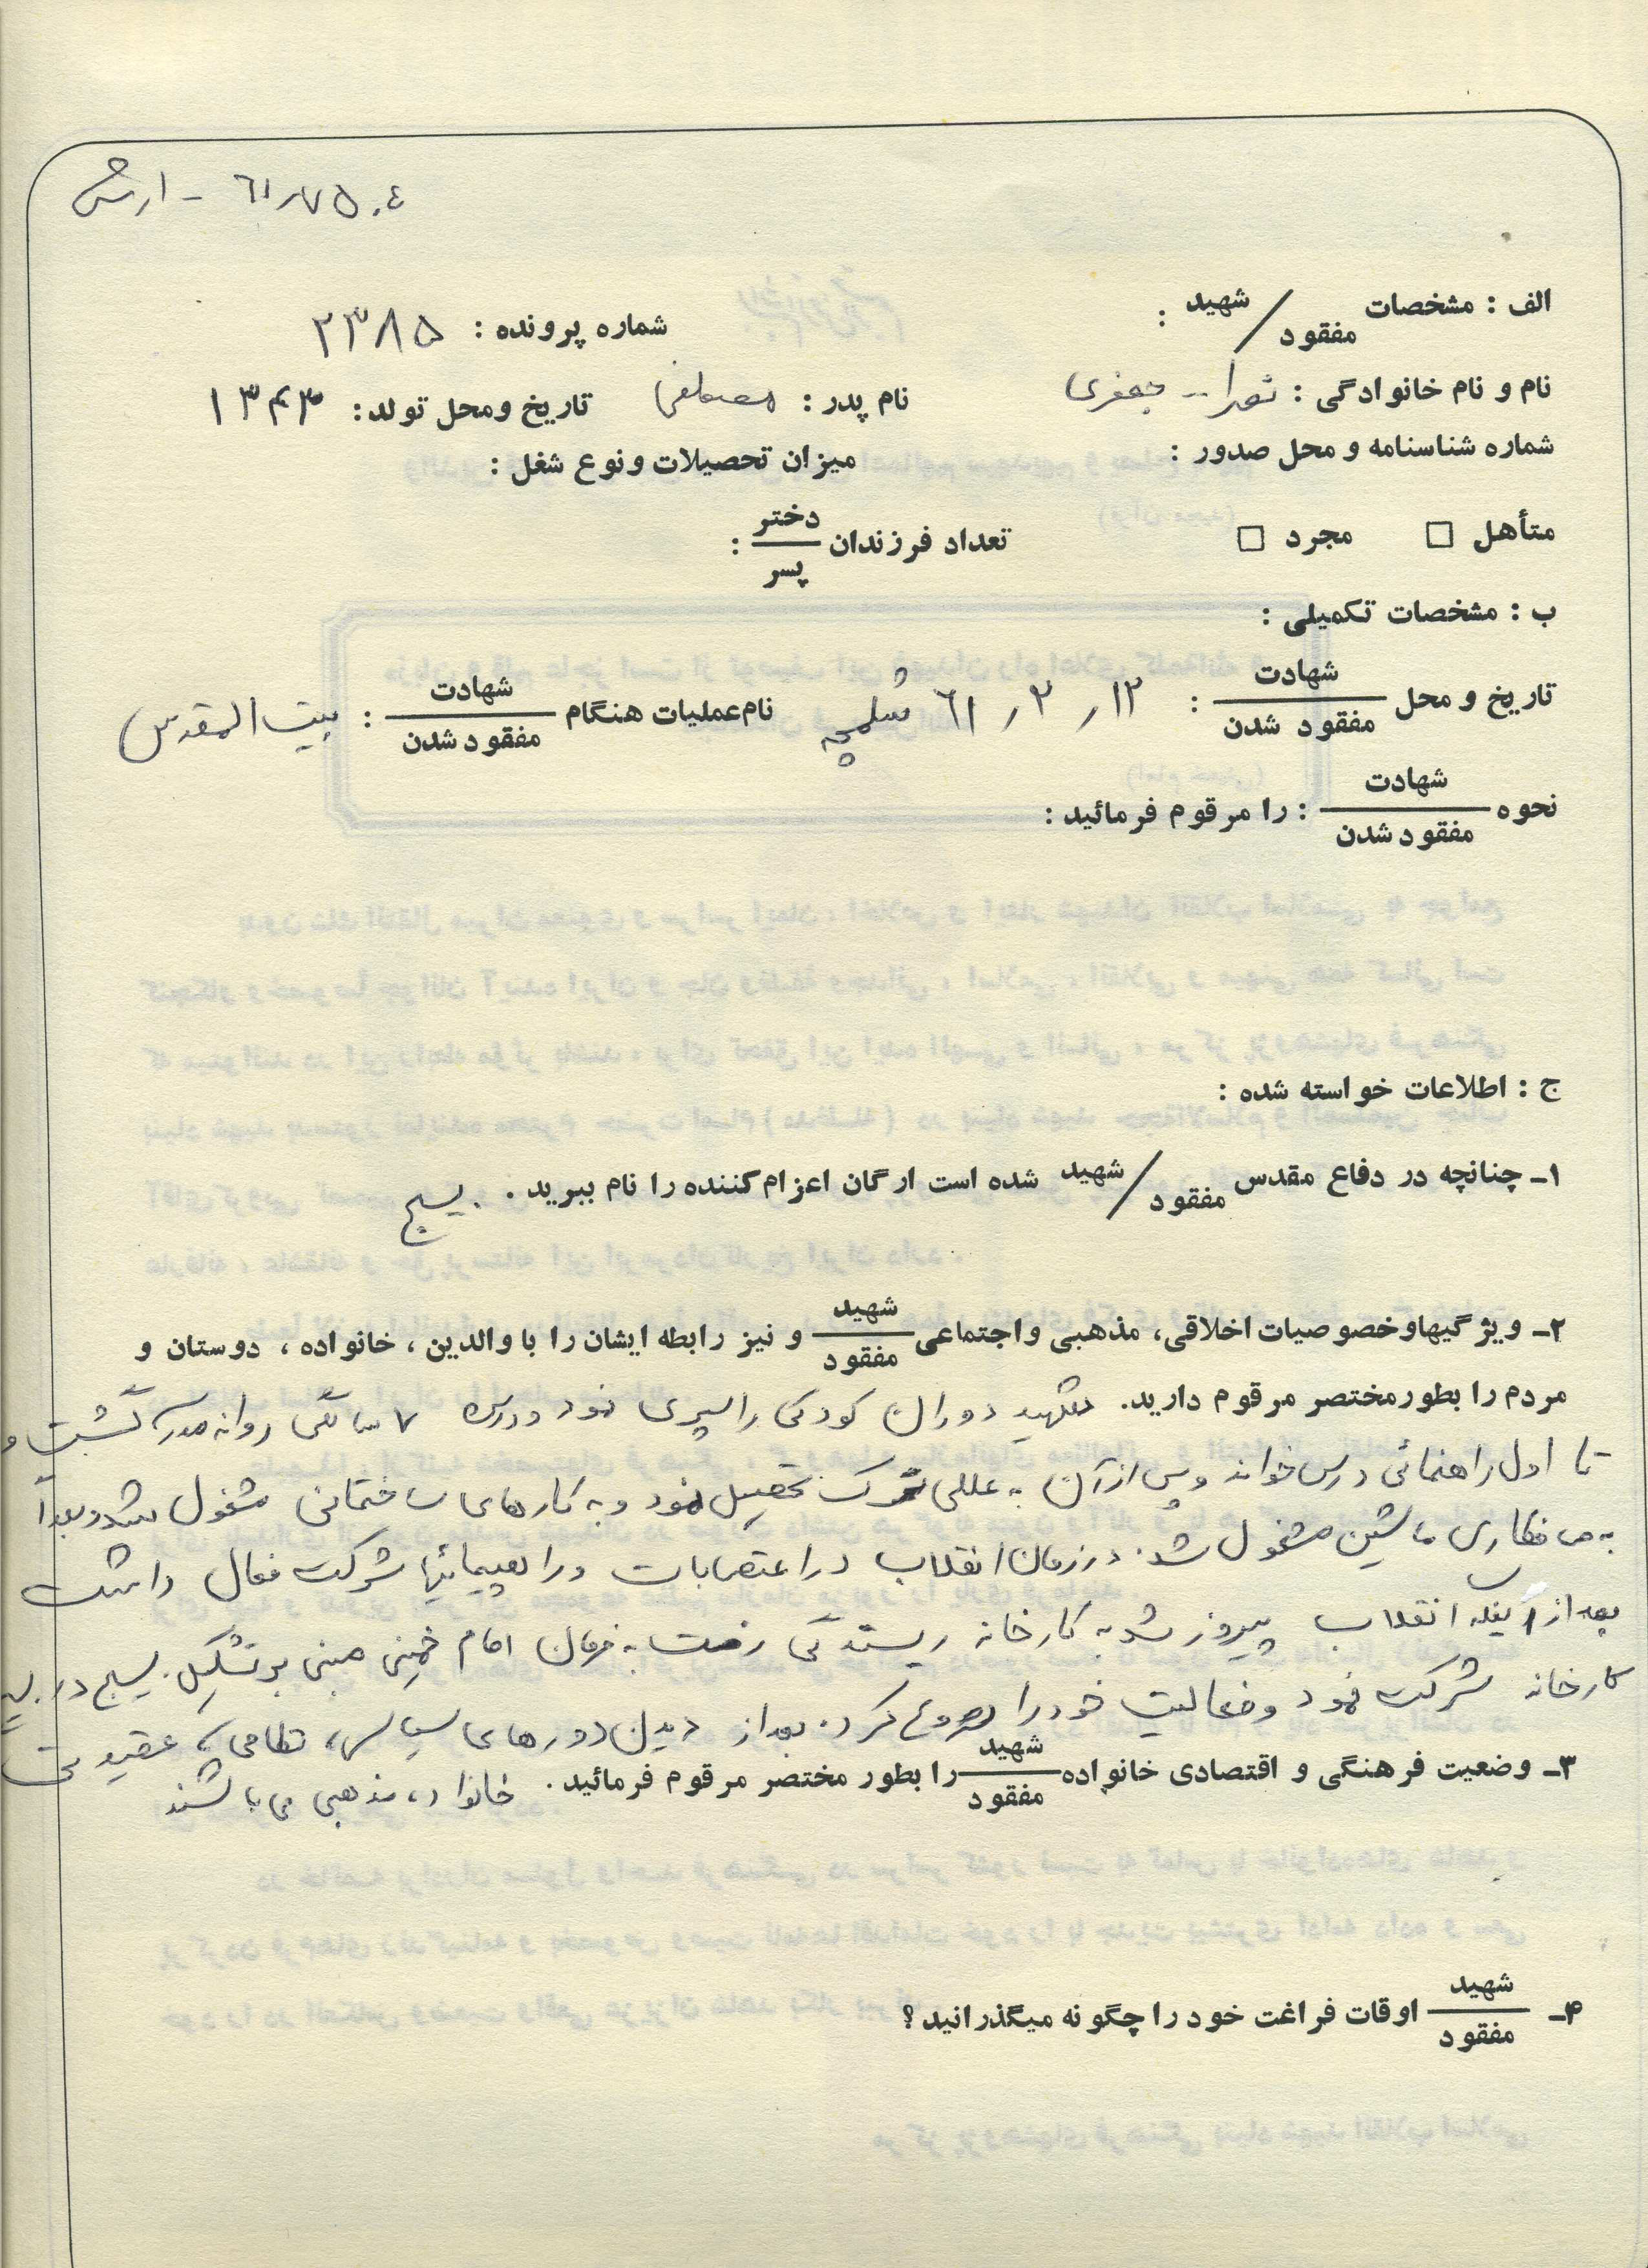 ۶۱٫۷۵۰۴ - ارتش
الف : مشخصات شهید / مفقود :
شماره پرونده : ۲۳۸۵
نام و نام خانوادگی : جعفری نام پدر : مصطفی تاریخ ومحل تولد : ۱۳۴۳
شماره شناسنامه و محل صدور : میزان تحصیلات ونوع شغل :
متأهل □ مجرد □ تعداد فرزندان دختر / پسر :
ب : مشخصات تکمیلی :
تاریخ و محل شهادت / مفقود شدن : ۱۲ ر ۲ ر ۶۱ شلمچه نام عملیات هنگام شهادت / مفقود شدن : بیت المقدس
نحوه شهادت / مفقود شدن : را مرقوم فرمائید :
ج : اطلاعات خواسته شده :
۱ـ چنانچه در دفاع مقدس شهید / مفقود شده است ارگان اعزام کننده را نام ببرید . بسیج
۲ـ ویژگیهاوخصوصیات اخلاقی، مذهبی واجتماعی شهید / مفقود و نیز رابطه ایشان را با والدین ، خانواده ، دوستان و
مردم را بطورمختصر مرقوم دارید. شهید دوران کودکی را سپری نمود ودرسن ۷ سالگی روانه مدرسه گشت و
تا اول راهنمائی درس خواند وپس ازآن به عللی ترک تحصیل نمود و به کارهای ساختمانی مشغول شد وبعداً
به صافکاری ماشین مشغول شد. درزمان انقلاب دراعتصابات ودرراهپیمائیها شرکت فعال داشت
بعداز اینکه انقلاب پیروز شد به کارخانه ریسندگی رفت به فرمان امام خمینی مبنی بر تشکیل بسیج در
کارخانه شرکت نمود وفعالیت خودرا شروع کرد. بعداز دیدن دورهای سیاسی، نظامی، عقیدتی
۳ـ وضعیت فرهنگی و اقتصادی خانواده شهید / مفقود را بطور مختصر مرقوم فرمائید . خانواده مذهبی می باشند
۴ـ شهید / مفقود اوقات فراغت خود را چگونه میگذرانید ؟